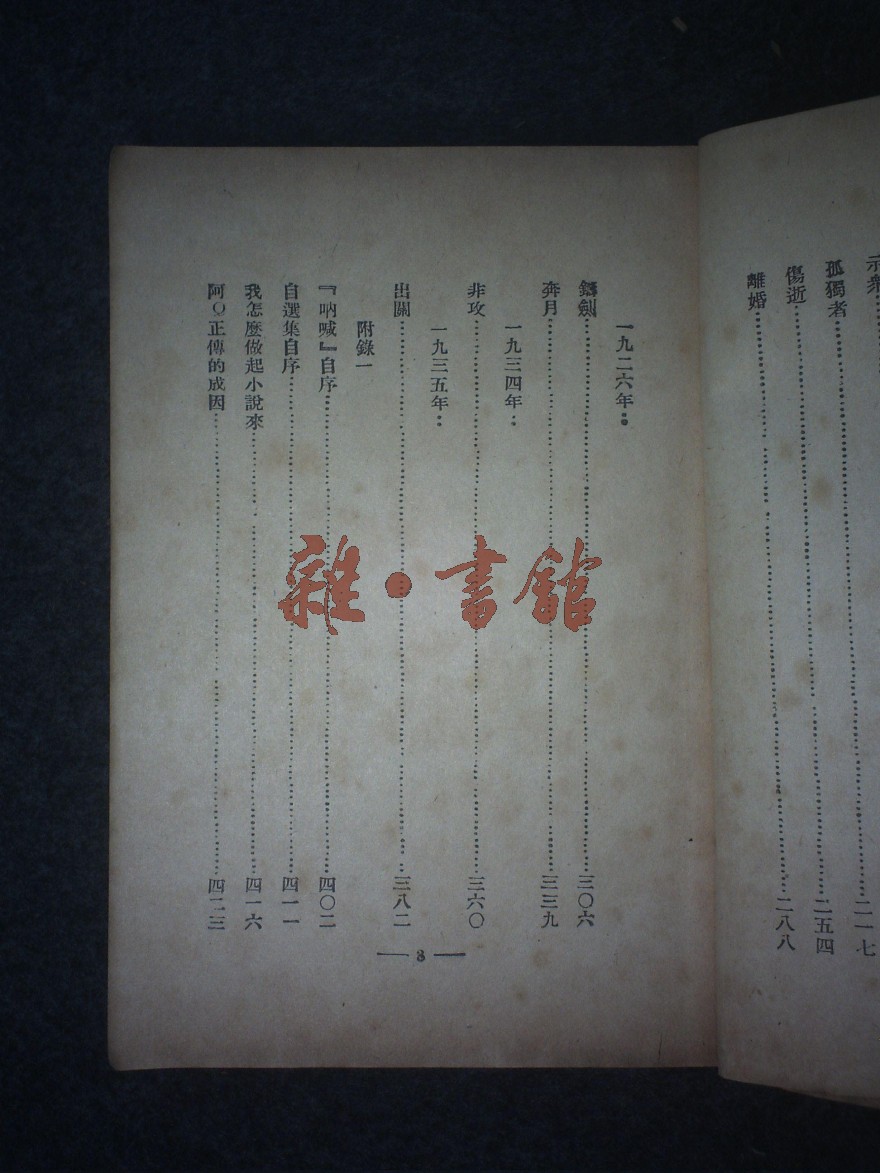 示衆……
孤獨者……二一七
傷逝……二五四
離婚……二八八
一九二六年：
鑄劍……三〇六
奔月……三三九
一九三四年：
非攻……三六〇
一九三五年：
出關……三八二
附錄一
『吶喊』自序……四〇二
自選集自序……四一一
我怎麼做起小說來……四一六
阿Q正傳的成因……四二三
— 3 —
雜·書館